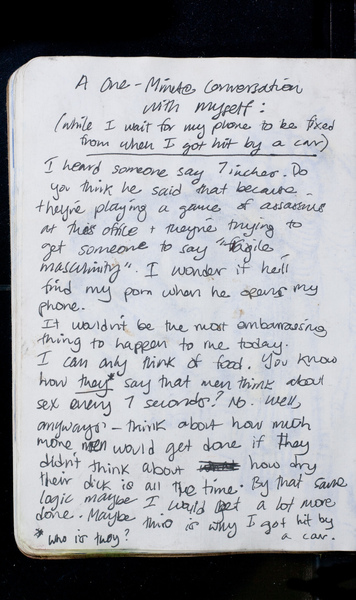 A One-Minute Conversation
with myself:
(while I wait for my phone to be fixed
from when I got hit by a car)
I heard someone say 7 inches. Do
you think he said that because
they're playing a game of assassins
at this office + they're trying to
get someone to say "fragile
masculinity". I wonder if he'll
find my porn when he opens my
phone.
It wouldn't be the most embarrassing
thing to happen to me today.
I can only think of food. You know
how they* say that men think about
sex every 7 seconds? No. Well,
anyways - think about how much
more men would get done if they
didn't think about how dry
their dick is all the time. By that same
logic maybe I would get a lot more
done. Maybe this is why I got hit by
a car.
* who is they?